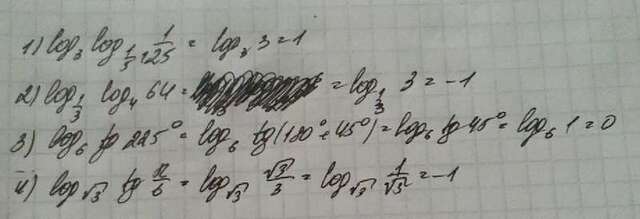 1) log₃ log_{1/5} 1/125 = log₃ 3 = 1
2) log_{1/3} log₄ 64 = = log_{1/3} 3 = -1
3) log₆ tg 225° = log₆ tg(180°+45°) = log₆ tg 45° = log₆ 1 = 0
4) log_{√3} tg π/6 = log_{√3} √3/3 = log_{√3} 1/√3 = -1